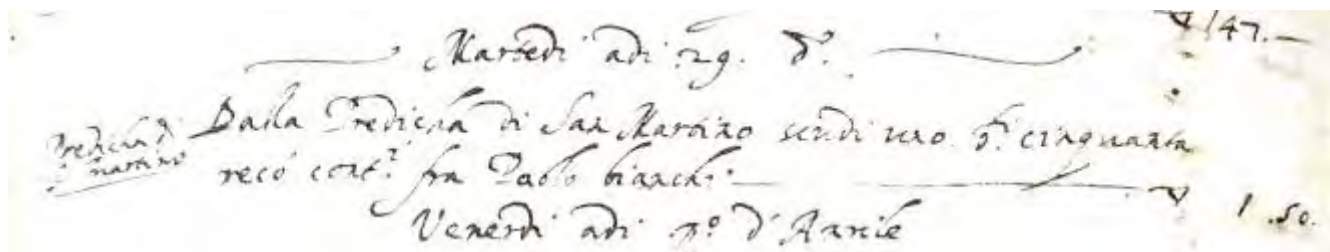 147.—
Martedi adi 29. d.º
Predicha di
S. Martino
Dalla Predicha di San Martino scudi uno b. cinquanta
recò cont.i fra Pablo bianchi
1.50.
Venerdi adi p.º d'Aprile